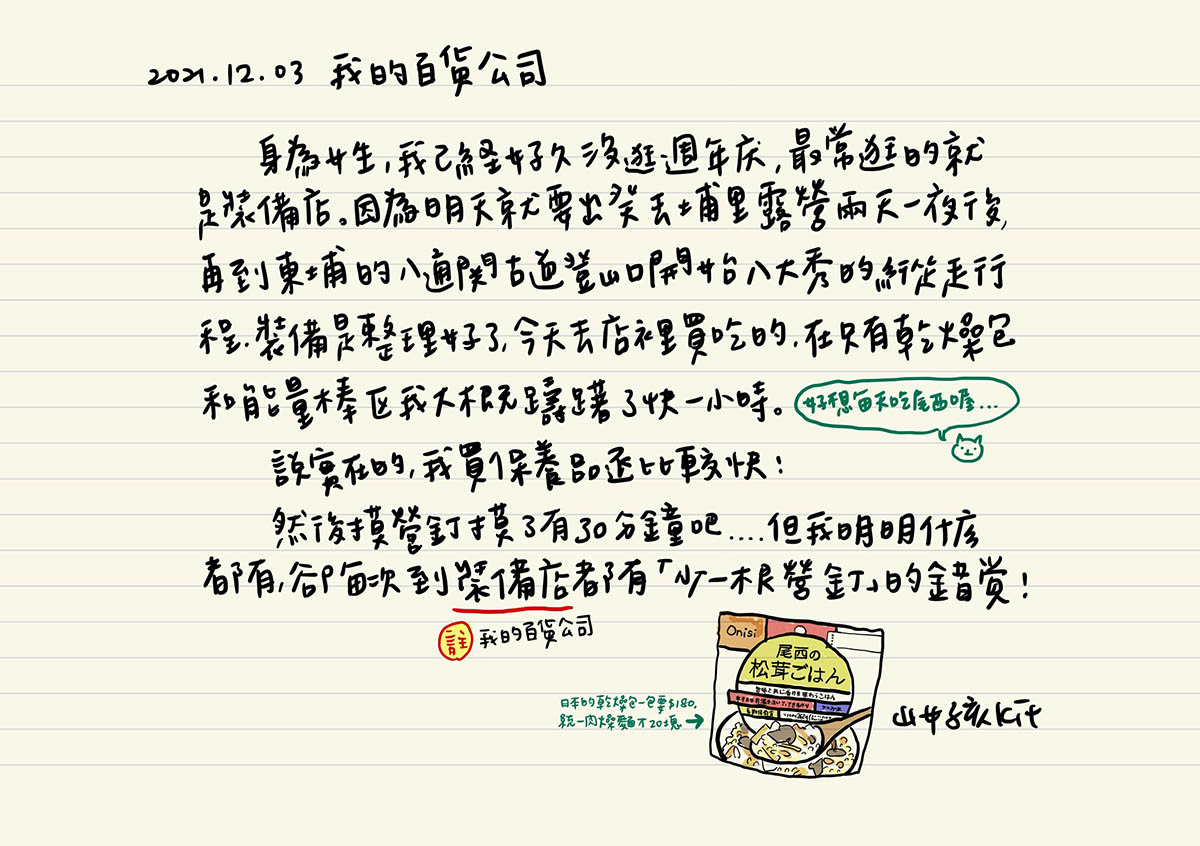 2021.12.03 我的百貨公司
身為女生,我已經好久沒逛週年庆,最常逛的就
是裝備店。因為明天就要出発去埔里露營兩天一夜後,
再到東埔的八通關古道登山口開始八大秀的縱走行
程.裝備是整理好了,今天去店裡買吃的.在只有乾燥包
和能量棒区我大概躊躇了快一小時。
好想每天吃尾西喔...
說實在的,我買保養品还比較快!
然後摸營釘摸了有30分鐘吧....但我明明什麼
都有,卻每次到裝備店都有「少一根營釘」的錯赏!
註 我的百貨公司
Onisi
尾西の
松茸ごはん
日本的乾燥包一包要$180,
統一肉燥麵才20塊→
山女孩Kit